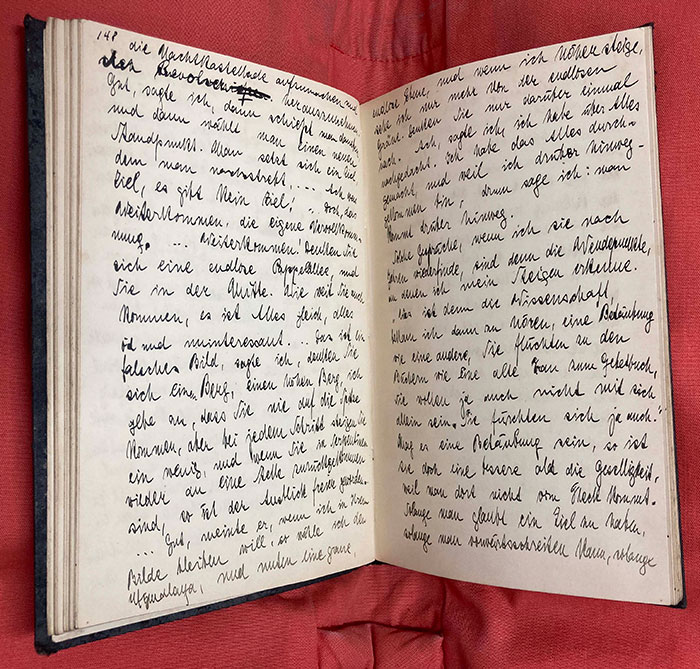 148
die Nachtkastellade aufzumachen und
den Revolver herauszunehmen
Gut, sagte ich, dann schießt man daneben
und dann wählt man einen neuen
Standpunkt. Man setzt sich ein Ziel
dem man nachstrebt, ... Ach was
Ziel, es gibt kein Ziel! .. Doch, das
Weiterkommen, die eigene Vervollkomm-
nung. ... Weiterkommen! Denken Sie
sich eine endlose Pappelallee, und
Sie in der Mitte. Wie weit Sie auch
kommen, es ist Alles gleich, alles
öd und uninteressant. .. Das ist ein
falsches Bild, sagte ich, denken Sie
sich einen Berg, einen hohen Berg, ich
gebe zu, dass Sie nie auf die Spitze
kommen, aber bei jedem Schritt steigen Sie
ein wenig, und wenn Sie in Serpentinen
wieder an eine Stelle zurückgekommen
sind, so ist der Ausblick freier geworden.
... Gut, meinte er, wenn ich in Ihrem
Bilde bleiben will, so wähle ich den
und unten eine graue,
endlose Ebene, und wenn ich höher steige,
sehe ich nur mehr von der endlosen
Gräue. Denken Sie nur darüber einmal
nach. .. Ach, sagte ich, ich habe über Alles
nachgedacht. Ich habe das Alles durch-
gemacht, und weil ich drüber hinweg-
gekommen bin, drum sage ich: man
kommt drüber hinweg.
Solche Gespräche, wenn ich sie nach
Jahren wiederfinde, sind denn die Wendepunkte,
an denen ich mein Steigen erkenne.
Was ist denn die Wissenschaft,
bekam ich dann zu hören, eine Betäubung
wie eine andere, Sie flüchten zu den
Büchern wie eine alte Frau zum Gebetbuch,
Sie wollen ja auch nicht mit sich
allein sein. Sie fürchten sich ja auch."
Mag es eine Betäubung sein, so ist
sie doch eine bessere als die Geselligkeit,
weil man dort nicht vom Fleck kommt.
Solange man glaubt ein Ziel zu haben,
solange man vorwärtsschreiten kann, solange